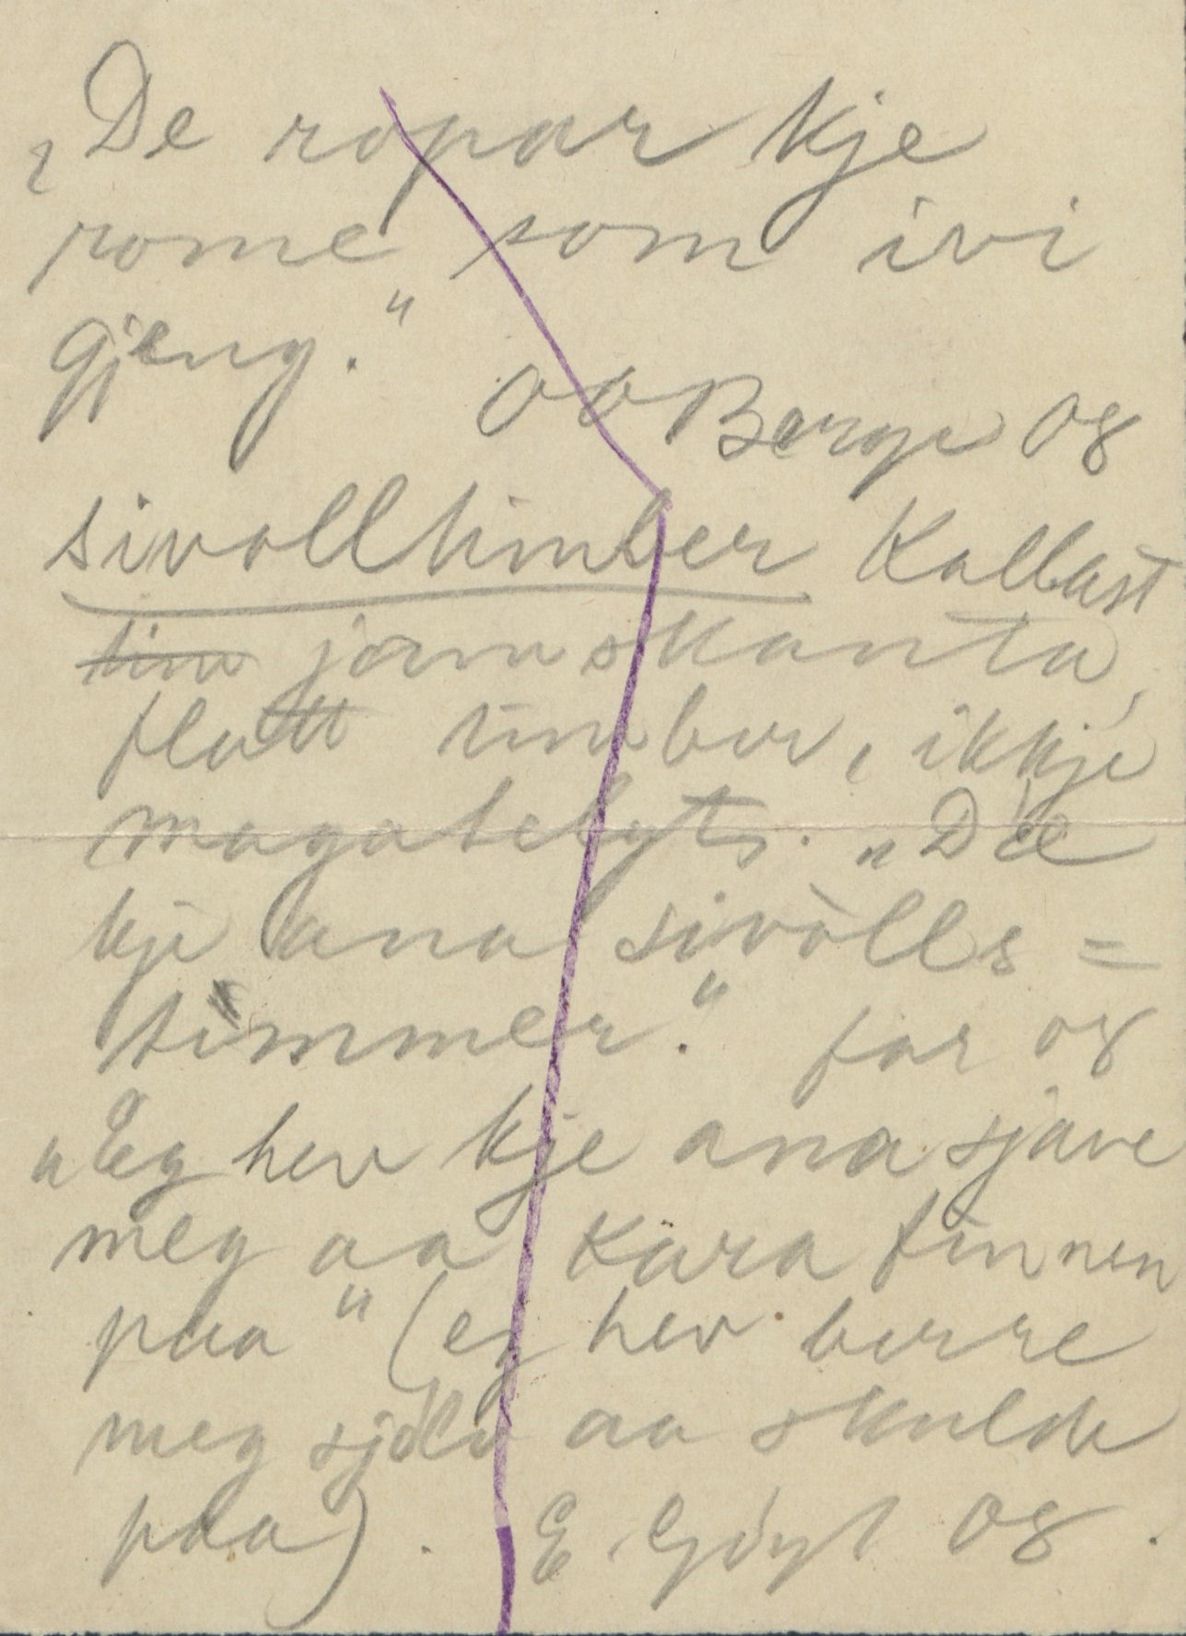 „De ropar kje
rome som ivi
gjeng."
O O Berge Og
sivolltimber Kallast
tim jamskanta,
flatt timber, ikkje
magatelgt. „D'æ
kje ana sivòlls=
timmer." far og
„Eg hev kje ana sjave
meg aa kara finnen
paa" (eg hev berre
meg sjölv aa skulde
paa). G. Og.